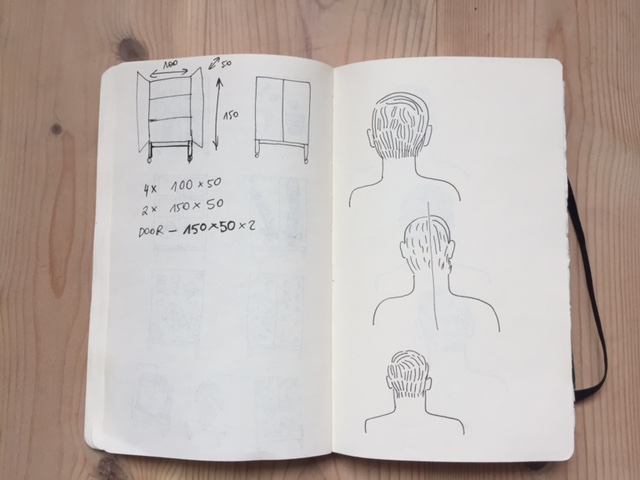 100
50
150
4x 100x50
2x 150x50
DOOR – 150x50x2